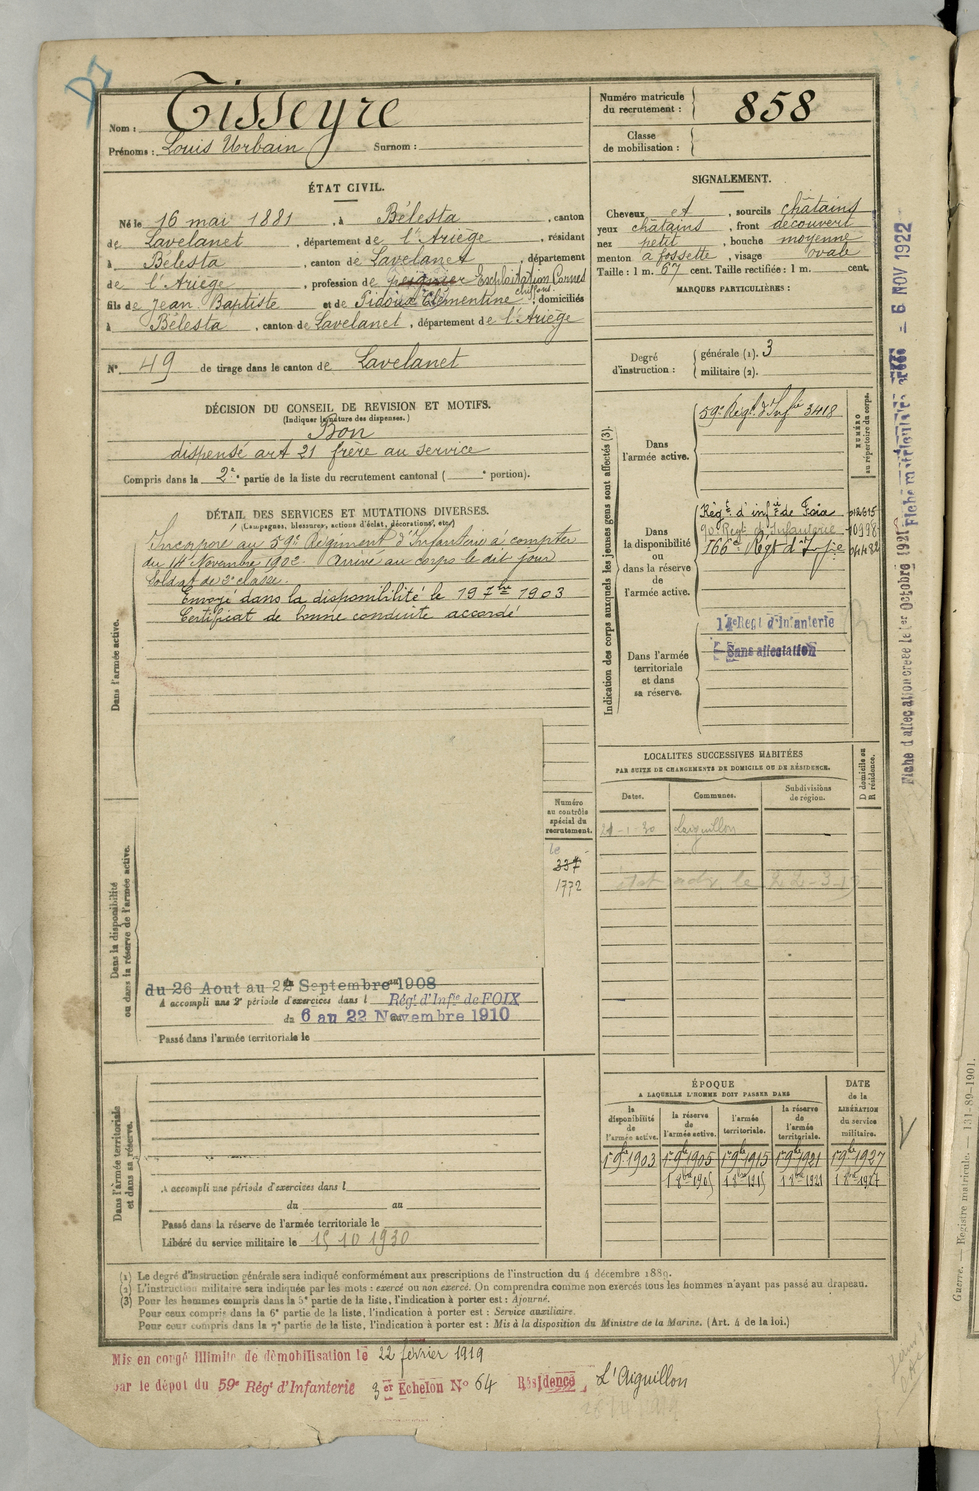 Nom : Tisseyre
Prénoms : Louis Urbain Surnom :
Numéro matricule
du recrutement : 858
Classe
de mobilisation :
ÉTAT CIVIL.
Né le 16 mai 1881, à Bélesta, canton
de Lavelanet, département de l'Ariège, résidant
à Bélesta, canton de Lavelanet, département
de l'Ariège, profession de peignier Exploitation Cornes
chiffons
fils de Jean Baptiste et de Pidoux Clémentine, domiciliés
à Bélesta, canton de Lavelanet, département de l'Ariège
N° 49 de tirage dans le canton de Lavelanet
SIGNALEMENT.
Cheveux et, sourcils châtains
yeux châtains, front découvert
nez petit, bouche moyenne
menton à fossette, visage ovale
Taille : 1 m. 67 cent. Taille rectifiée : 1 m. cent.
MARQUES PARTICULIÈRES :
Degré
d'instruction :
générale (1). 3
militaire (2).
DÉCISION DU CONSEIL DE REVISION ET MOTIFS.
(Indiquer la nature des dispenses.)
Bon
dispensé art 21 frère au service
Compris dans la 2e partie de la liste du recrutement cantonal ( e portion).
DÉTAIL DES SERVICES ET MUTATIONS DIVERSES.
(Campagnes, blessures, actions d'éclat, décorations, etc.)
Dans l'armée active.
Incorporé au 59e Régiment d'Infanterie à compter
du 14 Novembre 1902. Arrivé au corps le dit jour
Soldat de 2e classe.
Envoyé dans la disponibilité le 19 7bre 1903
Certificat de bonne conduite accordé
Dans la disponibilité
ou dans la réserve de l'armée active.
Numéro
au contrôle
spécial du
recrutement.
337
1772
du 26 Aout au 22 Septembre 1908
A accompli une 2e période d'exercices dans l Régt d'Infie de FOIX
du 6 au 22 Novembre 1910
Passé dans l'armée territoriale le
Dans l'armée territoriale
et dans sa réserve.
A accompli une période d'exercices dans l
du au
Passé dans la réserve de l'armée territoriale le
Libéré du service militaire le 15 10 1930
Indication des corps auxquels les jeunes gens sont affectés (3).
NUMÉRO
au répertoire du corps.
Dans
l'armée active.
59e Régt d'Infie 3418
Dans
la disponibilité
ou
dans la réserve
de
l'armée active.
Régt d'infie de Foix 012615
90 Regt d'Infanterie 10998
166e Régt d'Infie 04482
Dans l'armée
territoriale
et dans
sa réserve.
14e Regt d'Infanterie
Sans affectation
LOCALITÉS SUCCESSIVES HABITÉES
PAR SUITE DE CHANGEMENTS DE DOMICILE OU DE RÉSIDENCE.
D domicile ou
R résidence.
Dates. Communes. Subdivisions
de région.
21-1-20 Laiguillon
ÉPOQUE
A LAQUELLE L'HOMME DOIT PASSER DANS
la
disponibilité
de
l'armée active.
la réserve
de
l'armée active.
l'armée
territoriale.
la réserve
de
l'armée
territoriale.
DATE
de la
LIBÉRATION
du service
militaire.
1er 9bre 1903 1er 9bre 1905 1er 9bre 1915 1er 9bre 1921 1er 9bre 1927
1 8bre 1905 1 8bre 1915 1 8bre 1921 1 8bre 1927
(1) Le degré d'instruction générale sera indiqué conformément aux prescriptions de l'instruction du 4 décembre 1889.
(2) L'instruction militaire sera indiquée par les mots : exercé ou non exercé. On comprendra comme non exercés tous les hommes n'ayant pas passé au drapeau.
(3) Pour les hommes compris dans la 5e partie de la liste, l'indication à porter est : Ajourné.
Pour ceux compris dans la 6e partie de la liste, l'indication à porter est : Service auxiliaire.
Pour ceux compris dans la 7e partie de la liste, l'indication à porter est : Mis à la disposition du Ministre de la Marine. (Art. 4 de la loi.)
Mis en congé illimité de démobilisation le 22 février 1919
par le dépot du 59e Régt d'Infanterie 3er Echelon N° 64 Résidence L'Aiguillon
6 NOV 1922
Guerre. — Registre matricule. — 131-89-1901.